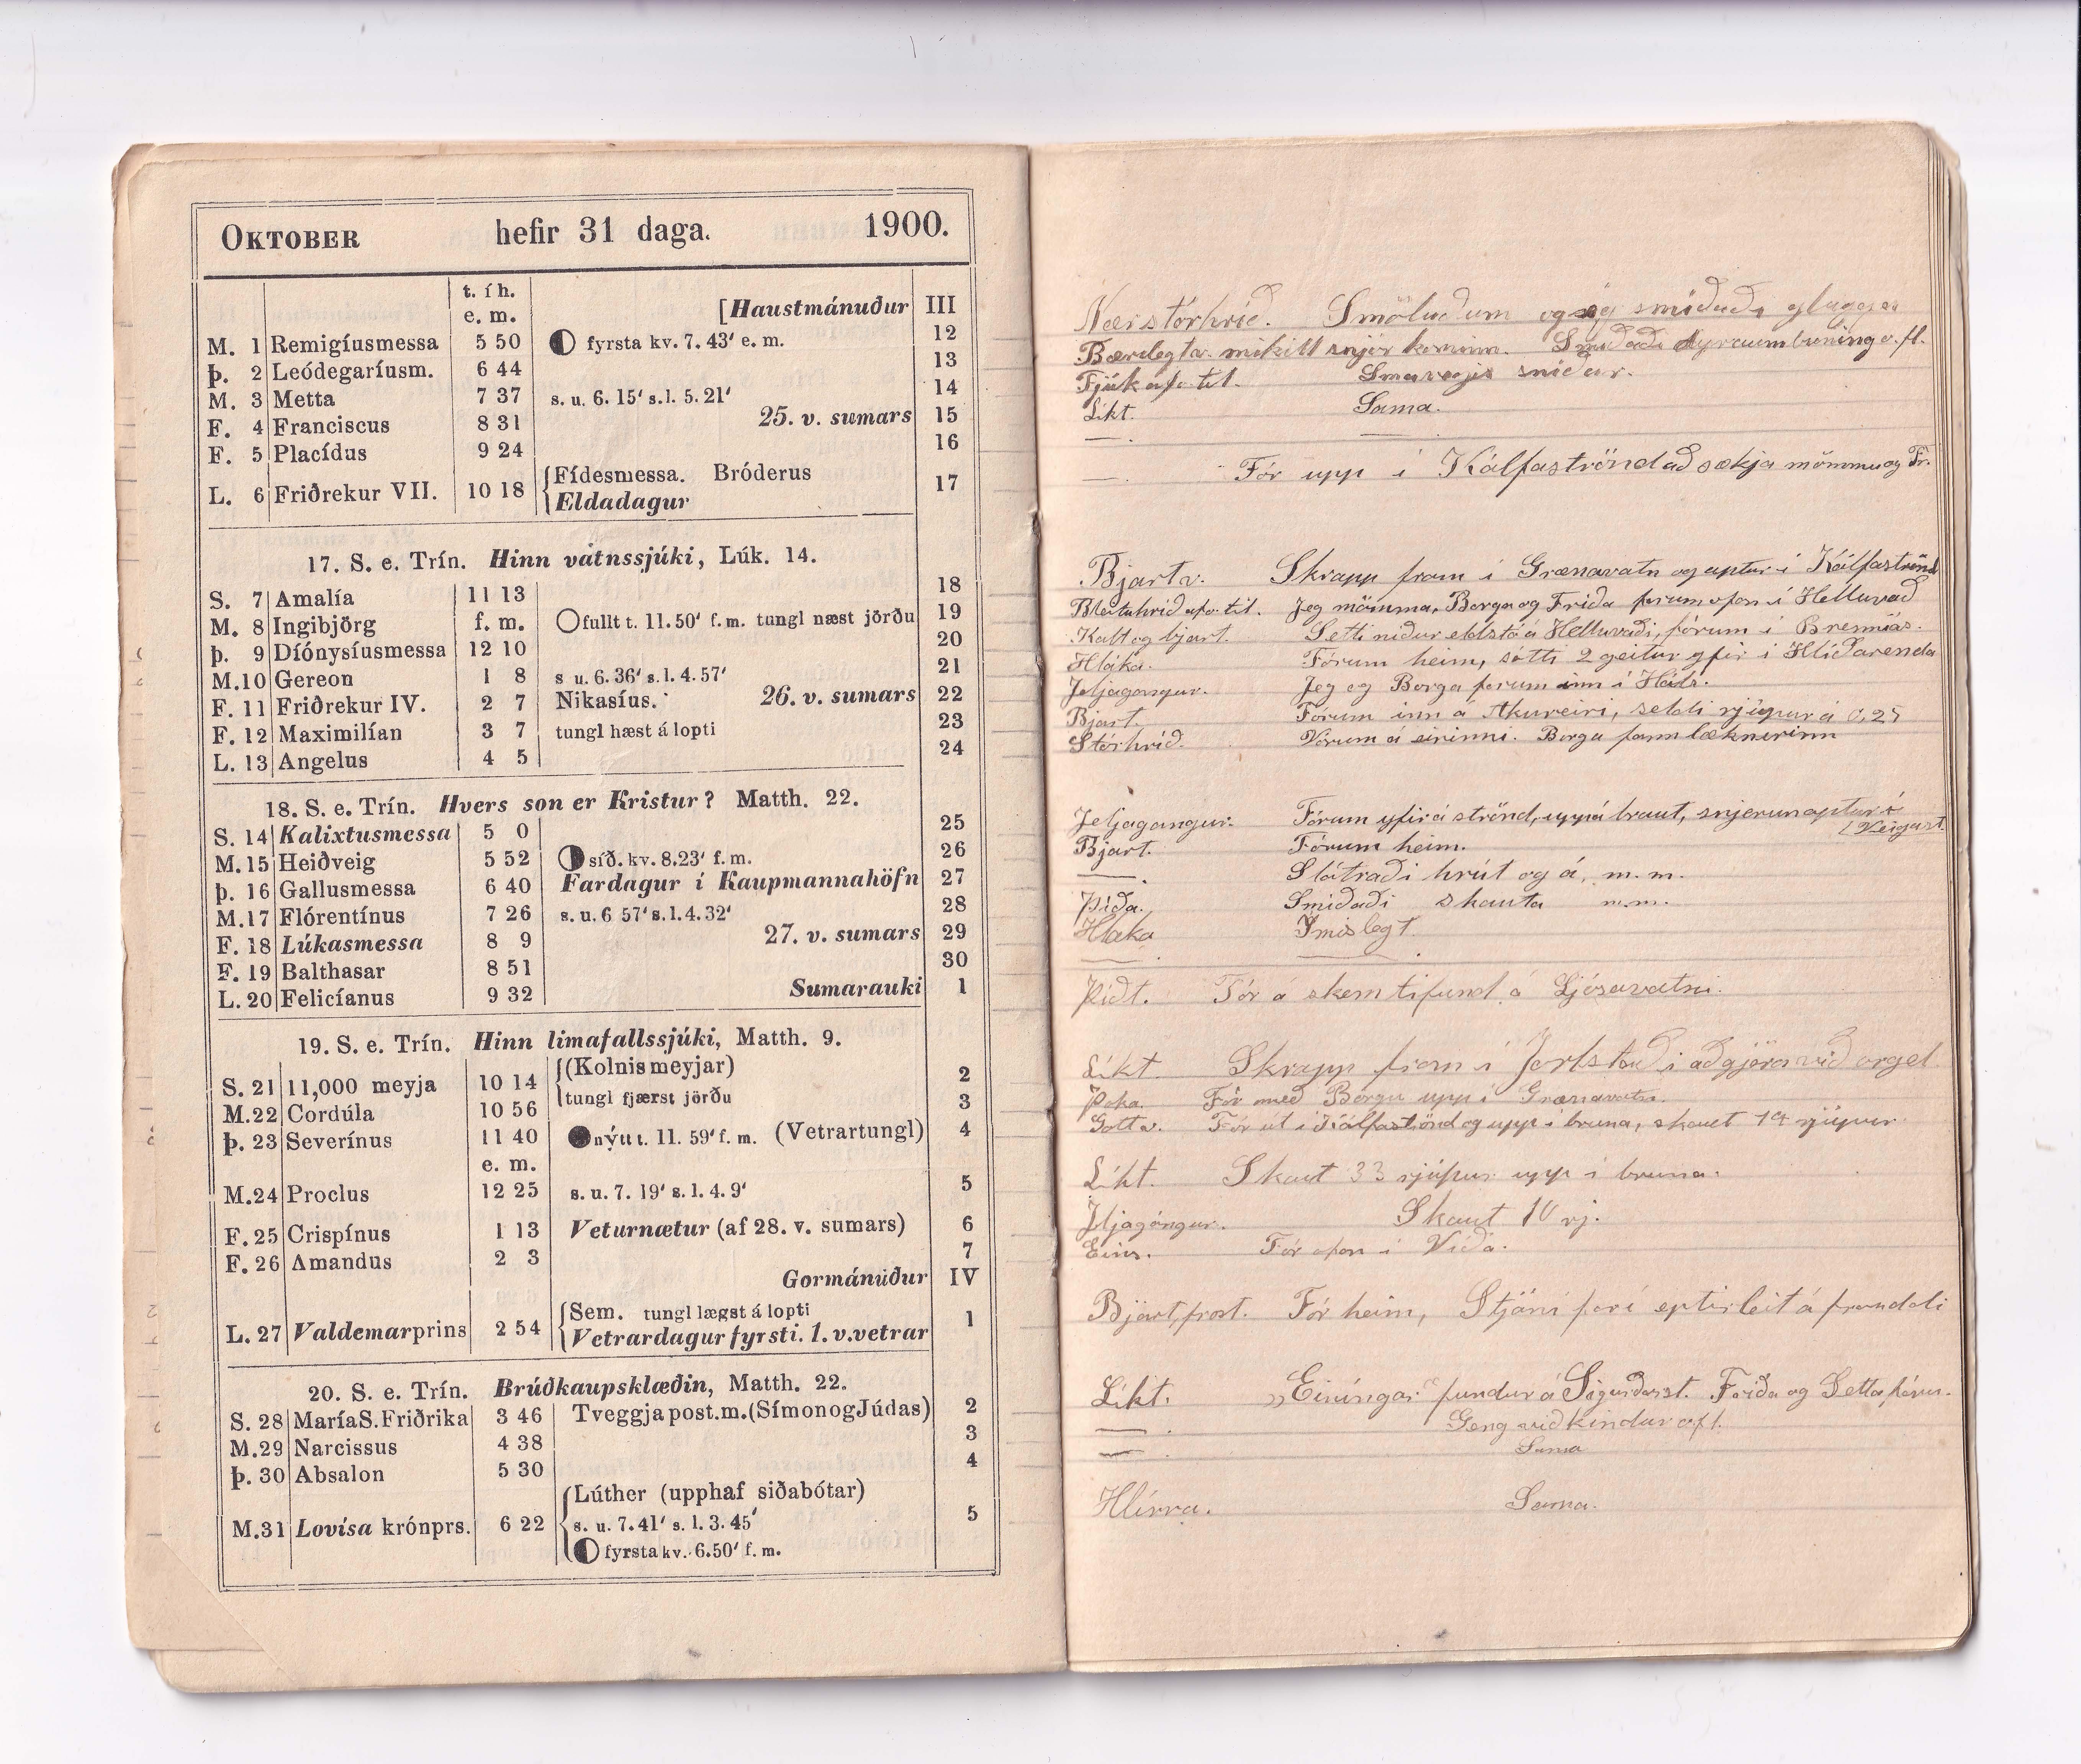 OKTOBER hefir 31 daga. 1900.
t. í h.
e. m. [Haustmánuður III
M. 1 Remigíusmessa 5 50 fyrsta kv. 7. 43' e. m. 12
Þ. 2 Leódegaríusm. 6 44 13
M. 3 Metta 7 37 s. u. 6. 15' s. l. 5. 21' 14
F. 4 Franciscus 8 31 25. v. sumars 15
F. 5 Placídus 9 24 16
L. 6 Friðrekur VII. 10 18 Fídesmessa. Bróderus 17
Eldadagur
17. S. e. Trín. Hinn vatnssjúki, Lúk. 14.
S. 7 Amalía 11 13 18
M. 8 Ingibjörg f. m. fullt t. 11. 50' f. m. tungl næst jörðu 19
Þ. 9 Díónysíusmessa 12 10 20
M. 10 Gereon 1 8 s u. 6. 36' s. l. 4. 57' 21
F. 11 Friðrekur IV. 2 7 Nikasíus. 26. v. sumars 22
F. 12 Maximilían 3 7 tungl hæst á lopti 23
L. 13 Angelus 4 5 24
18. S. e. Trín. Hvers son er Kristur? Matth. 22.
S. 14 Kalixtusmessa 5 0 25
M. 15 Heiðveig 5 52 síð. kv. 8.23' f. m. 26
Þ. 16 Gallusmessa 6 40 Fardagur í Kaupmannahöfn 27
M. 17 Flórentínus 7 26 s. u. 6 57' s. l. 4. 32' 28
F. 18 Lúkasmessa 8 9 27. v. sumars 29
F. 19 Balthasar 8 51 30
L. 20 Felicíanus 9 32 Sumarauki 1
19. S. e. Trín. Hinn limafallssjúki, Matth. 9.
S. 21 11,000 meyja 10 14 (Kolnismeyjar) 2
tungl fjærst jörðu
M. 22 Cordúla 10 56 3
Þ. 23 Severínus 11 40 nýtt t. 11. 59' f. m. (Vetrartungl) 4
e. m.
M. 24 Proclus 12 25 s. u. 7. 19' s. l. 4. 9' 5
F. 25 Crispínus 1 13 Veturnætur (af 28. v. sumars) 6
F. 26 Amandus 2 3 7
Gormánuður IV
L. 27 Valdemar prins 2 54 Sem. tungl lægst á lopti 1
Vetrardagur fyrsti. 1. v. vetrar
20. S. e. Trín. Brúðkaupsklæðin, Matth. 22.
S. 28 María S. Friðrika 3 46 Tveggja post. m. (Símon og Júdas) 2
M. 29 Narcissus 4 38 3
Þ. 30 Absalon 5 30 4
Lúther (upphaf siðabótar)
M. 31 Lovísa krónprs. 6 22 s. u. 7. 41' s. l. 3. 45' 5
fyrsta kv. 6.50' f. m.
Nærstórhríð. Smöluðum og jeg smíðaði glugga
Bærilegt v. mikill snjór kominn. Smíðaði dyraumbúning o. fl.
Fjúk af o. til. Smávegis smíðar.
Líkt. Sama.
—.
—. Fór upp í Kálfaströnd að sækja mömmu og Fr.
Bjart v. Skrapp fram í Grænavatn og aptur í Kálfaströnd
Bleituhríð af o. til. Jeg mamma, Borga og Fríða forum ofan í Helluvað
Kalt og bjart. Setti niður eldstó á Helluvaði, fórum í Brenniás.
Hláka. Fórum heim, sótti 2 geitur yfir í Hlíðarenda
Jeljagangur. Jeg og Borga forum inn í Háls.
Bjart. Fórum inn á Akureiri, seldi rjúpur á 0,25
Stórhríð. Vórum á eirinni. Borga fann læknirinn
Jeljagangur. Fórum yfir á strönd, upp á braut, snjerum aptur í
Veigast.
Bjart. Fórum heim.
—. Slátraði hrút og á, m. m.
Þíða. Smíðaði skauta m. m.
Hláka Ýmislegt.
—. —.
Þídt. Fór á skemtifund á Ljósavatni.
Líkt. Skrapp fram í Jarlstaði að gjöra við orgel
Þoka. Fór með Borgu upp í Grænavatn.
Gott v. Fór út í Kálfaströnd og upp í bruna, skaut 19 rjúpur
Líkt. Skaut 33 rjúpur upp í bruna.
Jeljagángur. Skaut 10 rj.
Eins. Fór ofan í Víða.
Bjart, frost. Fór heim, Stjáni fór í eptirleit á framdali
Líkt. „Einíngar" fundur á Sigurðarst. Fríða og Setta fóru.
—. Geng við kindur o. fl.
—. Sama
Hlírra. Sama.